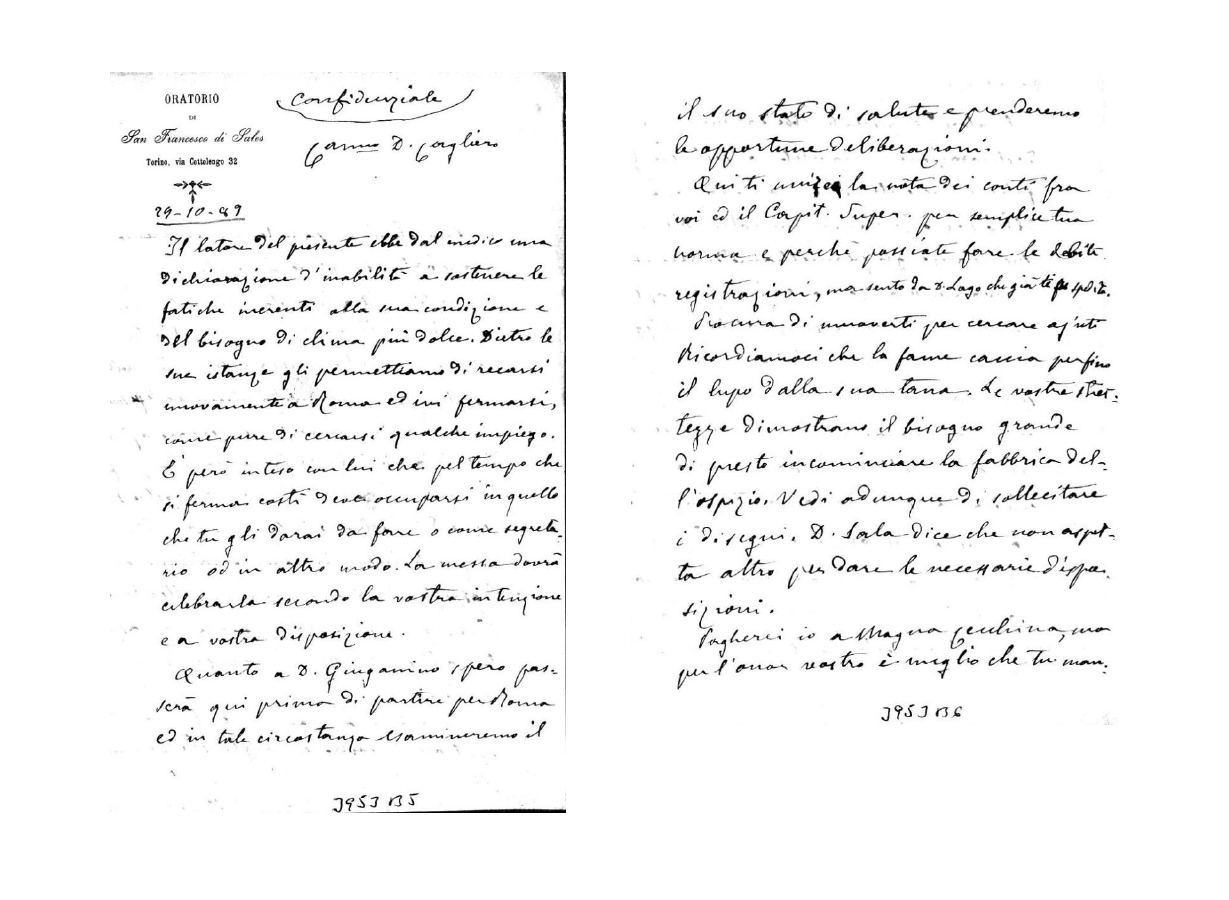 ORATORIO
DI
San Francesco di Sales
Torino, via Cottolengo 32
29-10-89
Confidenziale
Carmo D. Cagliero
Il latore del presente ebbe dal medico una
dichiarazione d'inabilità a sostenere le
fatiche inerenti alla sua condizione e
del bisogno di clima più dolce. Dietro le
sue istanze gli permettiamo di recarsi
nuovamente a Roma ed ivi fermarsi,
come pure di cercarsi qualche impiego.
È però inteso con lui che pel tempo che
si ferma costì deve occuparsi in quello
che tu gli darai da fare o come segreta-
rio od in altro modo. La messa dovrà
celebrarla secondo la vostra intenzione
e a vostra disposizione.
Quanto a D. Ginganino spero pas-
serà qui prima di partire per Roma
ed in tale circostanza esamineremo il
J953 B5
il suo stato di salute e prenderemo
le opportune deliberazioni.
Qui ti la nota dei conti fra
voi ed il Capit. Super. per semplice tua
norma e perchè possiate fare le debite
registrazioni, ma sento da D. Lago che già te fu spedita.
Procura di muoverti per cercare ajuti
Ricordiamoci che la fame caccia perfino
il lupo dalla sua tana. Le vostre stret-
tezze dimostrano il bisogno grande
di presto incominciare la fabbrica del-
l'ospizio. Vedi adunque di sollecitare
i disegni. D. Sala dice che non aspet-
ta altro per dare le necessarie dispo-
sizioni.
Pagherei io a Magna, ma
per l'onor vostro è meglio che tu man-
J953 B6